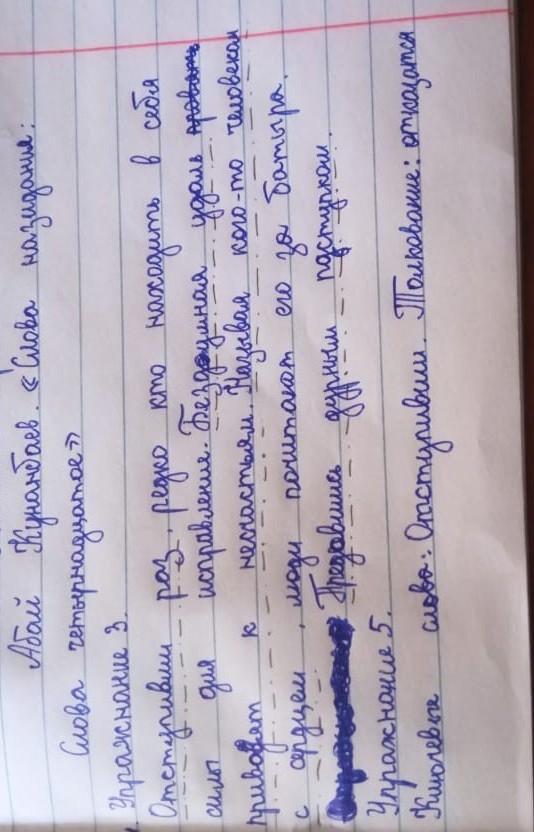 Абай Кунанбаев. «Слова назидания:
Слова четырнадцатое»
Упражнание 3.
Отступивши раз, редко кто находить в себя
силы для исправление. Бездушная удаль
приводят к несчастьям. Называя кого-то человеком
с сердцем, люди почитают его за батыра.
Предавшись дурным поступкам.
Упражнание 5.
Ключевые слова: Отступивши. Толкование: отказатся